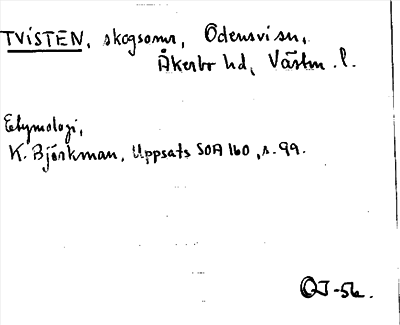 TVISTEN, skogsomr, Odensvi sn,
Åkerbo hd, Västm. l.
Etymologi,
K. Björkman, Uppsats SOA 160, s. 99.
OJ-56.